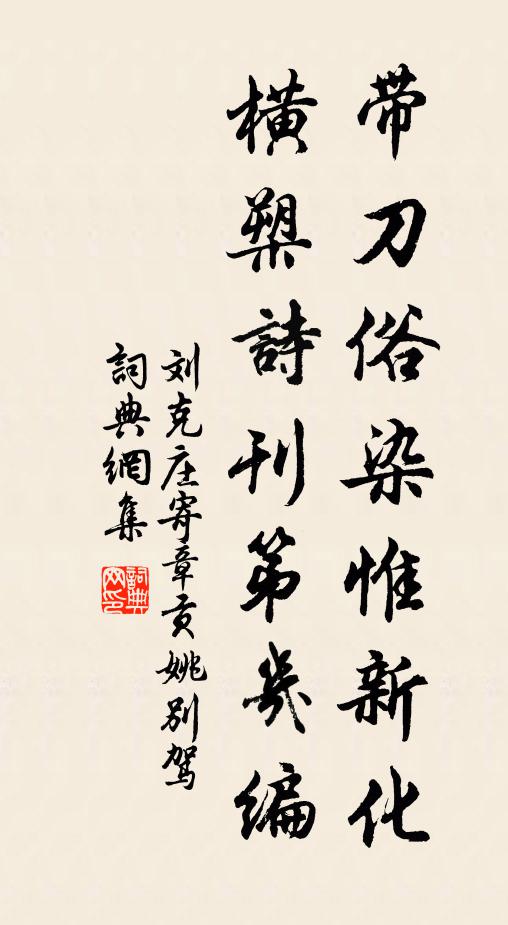 带刀俗染惟新化
橫槊詩刊第幾編
刘克庄寄章贡姚别驾
詞典網集
詞典網印